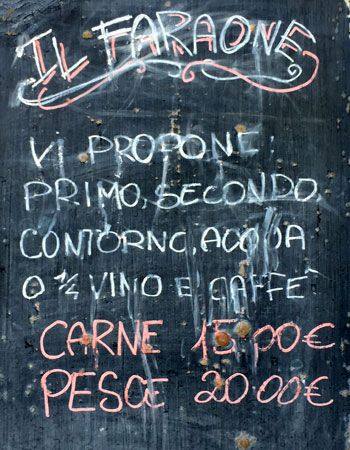 IL FARAONE
VI PROPONE:
PRIMO, SECONDO,
CONTORNO, ACQUA
O ¼ VINO E CAFFE'
CARNE 15,00€
PESCE 20.00€